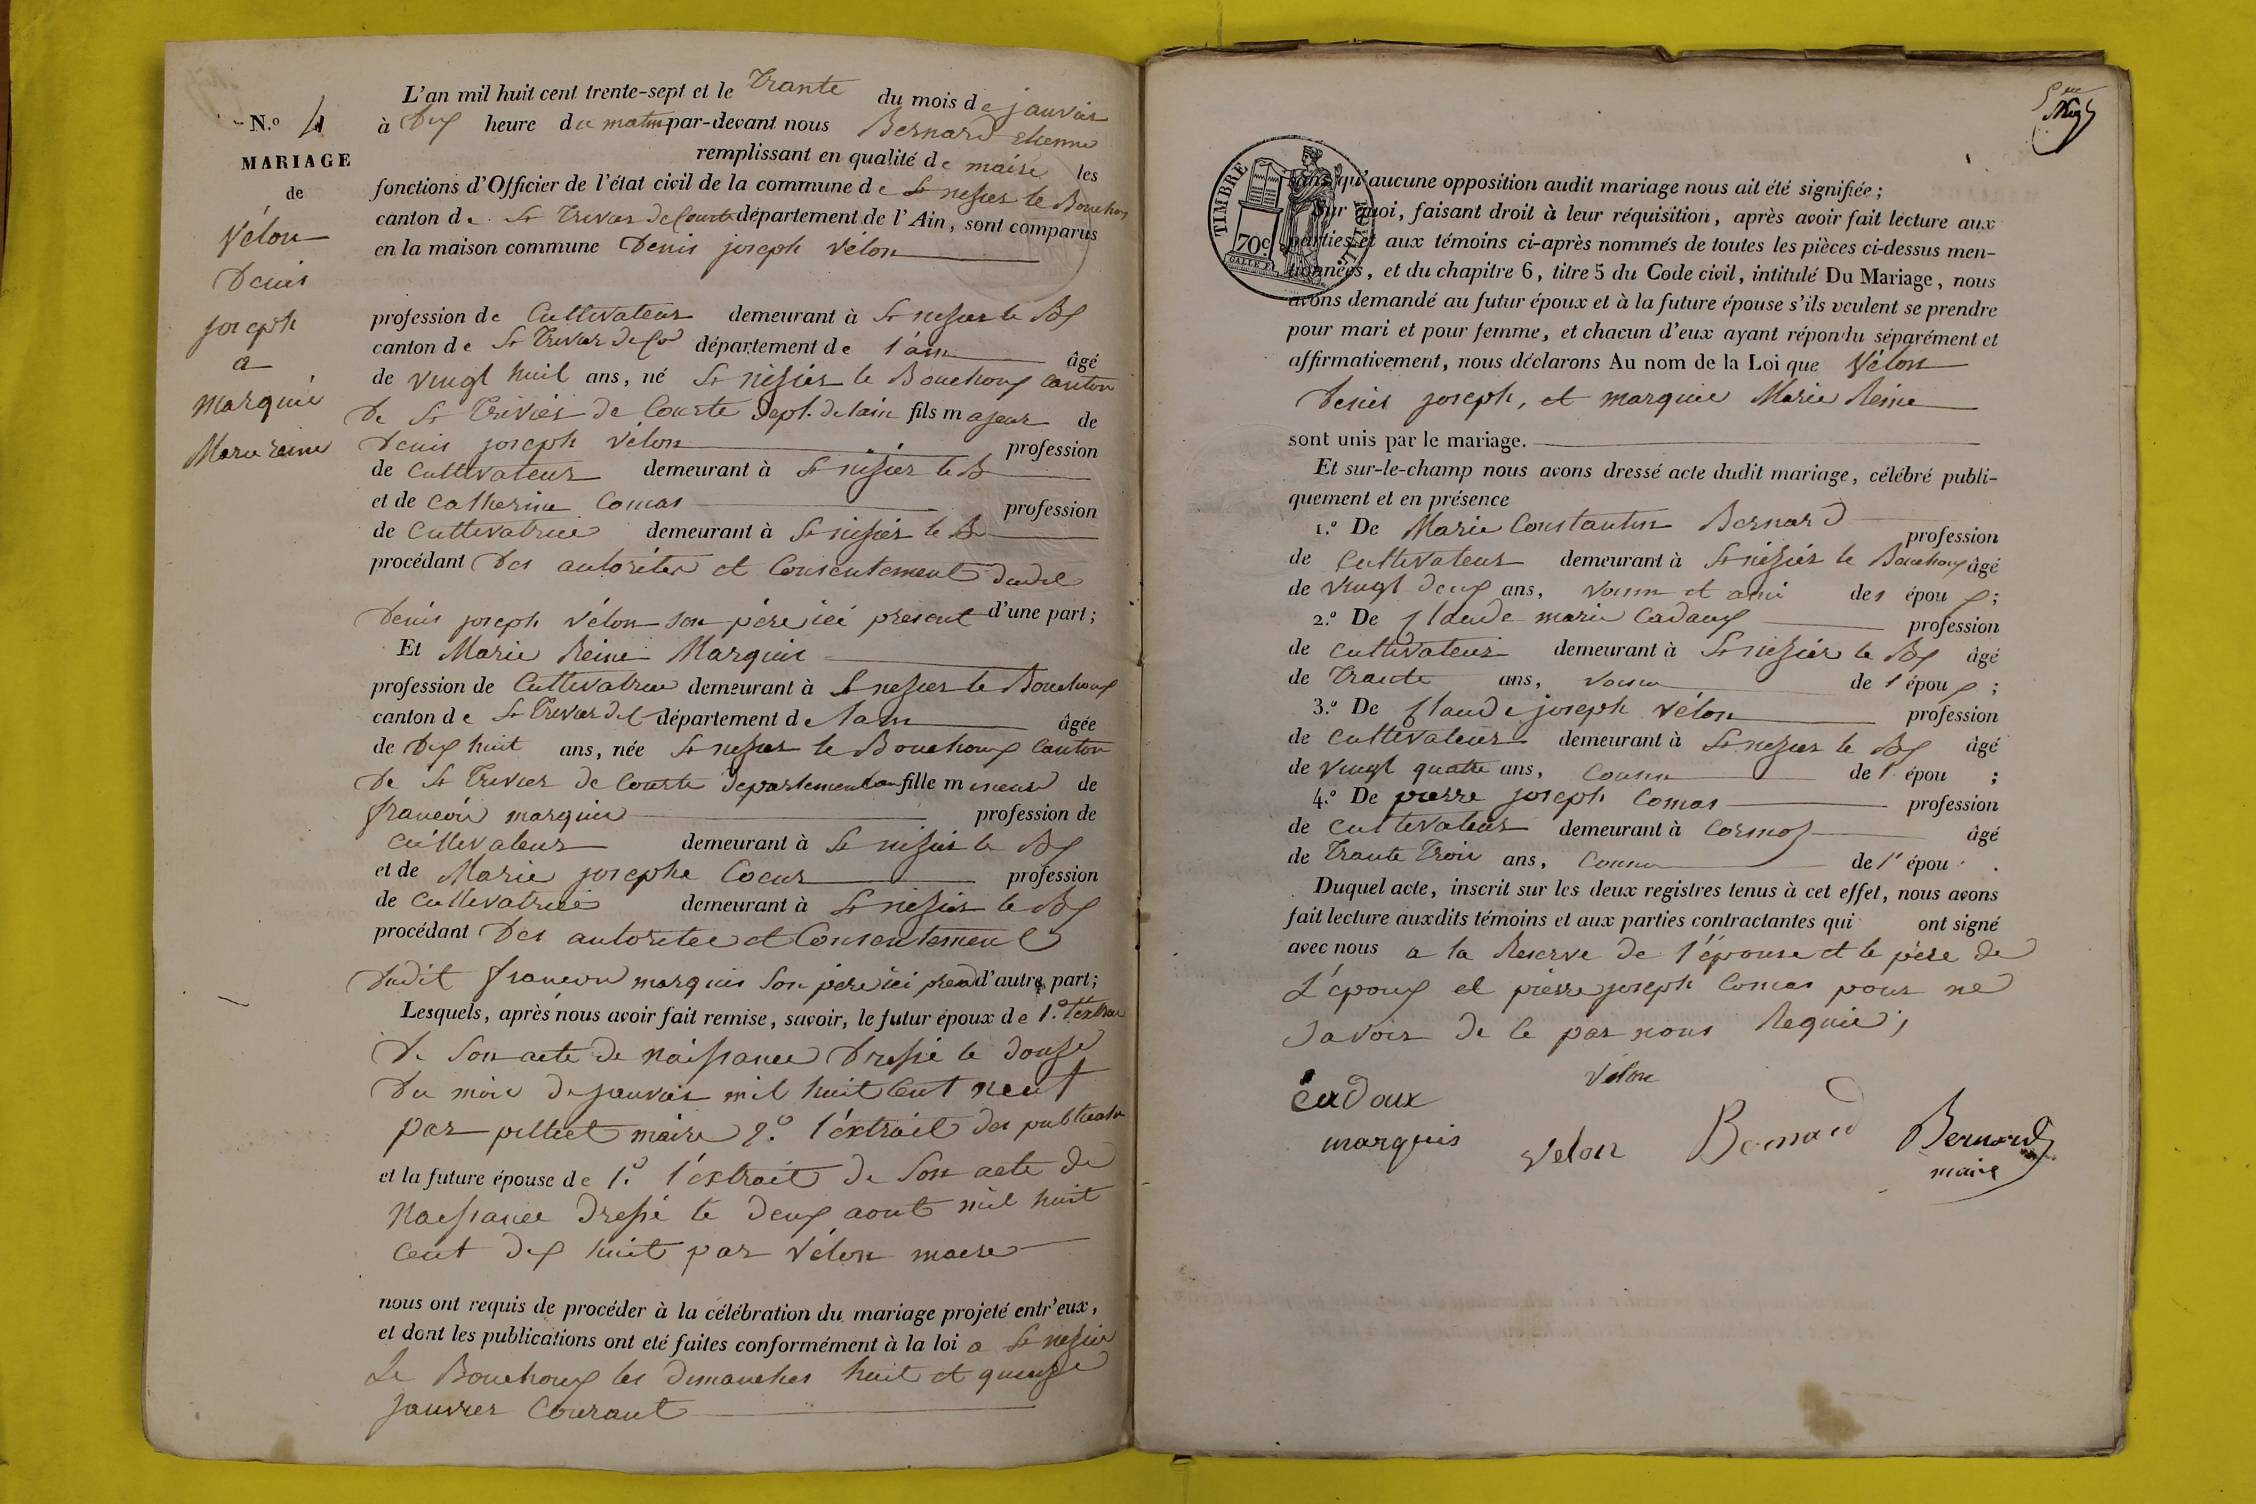 N.o 4
MARIAGE
de
Vélon
Denis
joseph
a
marquis
Marie reine
L'an mil huit cent trente-sept et le Trante du mois de janvier
à Dix heure du matin par-devant nous Bernard Etienne
remplissant en qualité de maire les
fonctions d'Officier de l'état civil de la commune de St nizier le Bouchoux
canton de St Trivier de Courte département de l'Ain, sont comparus
en la maison commune Denis joseph Vélon
profession de Cultivateur demeurant à St nizier le Bx
canton de St Trivier de Co département de l'ain âgé
de vingt huit ans, né St nizier le Bouchoux canton
De St Trivier de Courte Dept. de lain fils majeur de
Denis joseph Vélon profession
de Cultivateur demeurant à St nizier le B
et de Catherine Comas profession
de Cultivatrice demeurant à St nizier le B
procédant Des autorités et Consentement dudit
Denis joseph Vélon son père ici present d'une part;
Et Marie Reine Marquis
profession de Cultivatrice demeurant à St nizier le Bouchoux
canton de St Trivier de C département de lain âgée
de Dix huit ans, née St nizier le Bouchoux Canton
De St Trivier de Courte Departement ain fille mineure de
françois marquis profession de
Cultivateur demeurant à St nizier le Bx
et de Marie josephe Coeur profession
de Cultivatrice demeurant à St nizier le Bx
procédant Des autoritée et Consentement
Dudit françois marquis Son père ici d'autre part;
Lesquels, après nous avoir fait remise, savoir, le futur époux de 1.o l'extrait
De Son acte de Naissance Dressé le douze
Du mois de janvier mil huit Cent neuf
par maire 2.o l'éxtrait des publication
et la future épouse de 1.o l'éxtrait de Son acte de
Naissance Dressé le deux aout mil huit
Cent dix huit par Vélon maire
nous ont requis de procéder à la célébration du mariage projeté entr'eux,
et dont les publications ont eté faites conformément à la loi a St nizier
Le Bouchoux les dimanches huit et quinze
Janvier Courant
TIMBRE
ROYAL
70c
sans qu'aucune opposition audit mariage nous ait été signifiée;
Sur quoi, faisant droit à leur réquisition, après avoir fait lecture aux
parties et aux témoins ci-après nommés de toutes les pièces ci-dessus men-
tionnées, et du chapitre 6, titre 5 du Code civil, intitulé Du Mariage, nous
avons demandé au futur époux et à la future épouse s'ils veulent se prendre
pour mari et pour femme, et chacun d'eux ayant répondu séparément et
affirmativement, nous déclarons Au nom de la Loi que Vélon
Denis joseph, et marquis Marie Reine
sont unis par le mariage.
Et sur-le-champ nous avons dressé acte dudit mariage, célébré publi-
quement et en présence
1.o De Marie Constantin Bernard profession
de Cultivateur demeurant à St nizier le Bouchoux âgé
de vingt deux ans, voisin et ami des époux;
2.o De Claude marie Cadoux profession
de Cultivateur demeurant à St nizier le Bx âgé
de Trante ans, voisin de l'époux;
3.o De Claude joseph Vélon profession
de Cultivateur demeurant à St nizier le Bx âgé
de vingt quatre ans, cousin de l'épou ;
4.o De pierre joseph Comas profession
de Cultivateur demeurant à Cormoz âgé
de Trante Trois ans, Cousin de l'épou .
Duquel acte, inscrit sur les deux registres tenus à cet effet, nous avons
fait lecture auxdits témoins et aux parties contractantes qui ont signé
avec nous a la Reserve de l'épouse et le père de
L'époux et pierre joseph Comas pour ne
Savoir de ce par nous Requis;
Vélon
Cadoux
marquis
Velon
Bernard
Bernard
maire